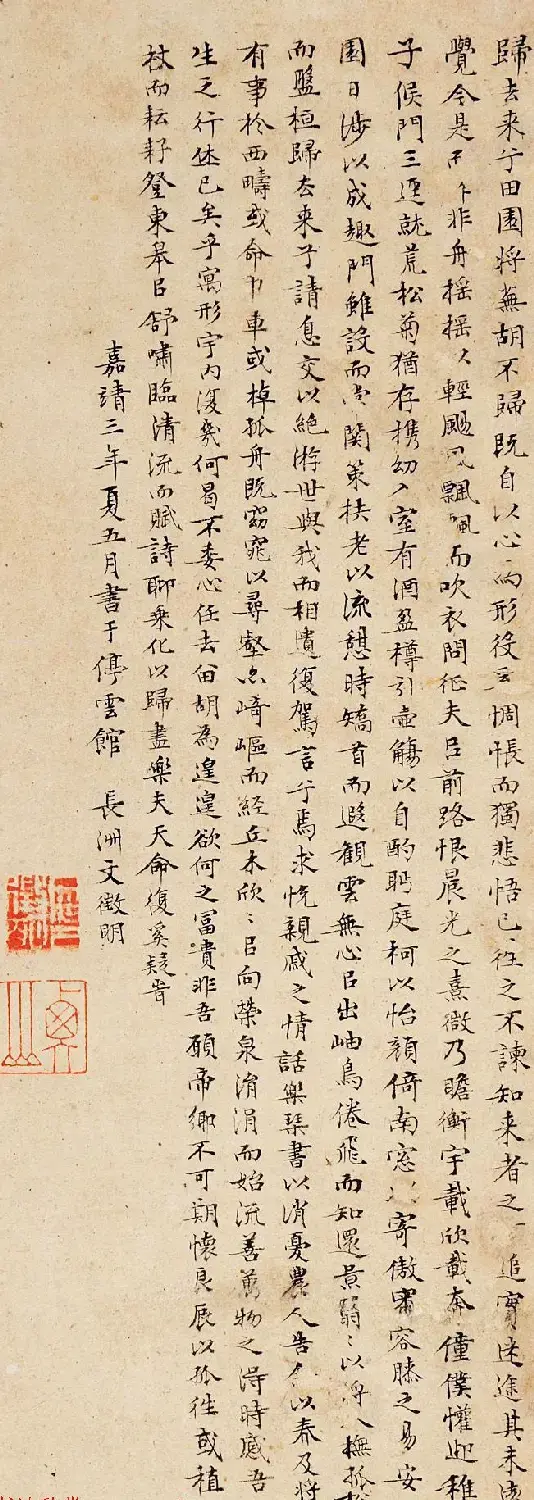 歸去来兮田園將蕪胡不歸既自以心爲形役奚惆悵而獨悲悟已往之不諫知来者之追實迷途其未遠
覺今是而昨非舟摇摇以輕颺風飄飄而吹衣問征夫以前路恨晨光之熹微乃瞻衡宇載欣載奔僮僕懽迎稚
子候門三逕就荒松菊猶存携幼入室有酒盈樽引壶觴以自酌眄庭柯以怡顔倚南窓以寄傲審容膝之易安
園日涉以成趣門雖設而常關策扶老以流憩時矯首而遐觀雲無心以出岫鳥倦飛而知還景翳翳以將入撫孤松
而盤桓歸去来兮請息交以絶游世與我而相遺復駕言兮焉求悅親戚之情話樂琴書以消憂農人告余以春及將
有事於西疇或命巾車或棹孤舟既窈窕以尋壑亦崎嶇而經丘木欣欣以向榮泉涓涓而始流善萬物之得時感吾
生之行休已矣乎寓形宇内復幾何曷不委心任去留胡為遑遑欲何之富貴非吾願帝鄉不可期懷良辰以孤往或植
杖而耘耔登東皋以舒嘯臨清流而賦詩聊乘化以歸盡樂夫天命復奚疑
嘉靖三年夏五月書于停雲館 長洲文徵明